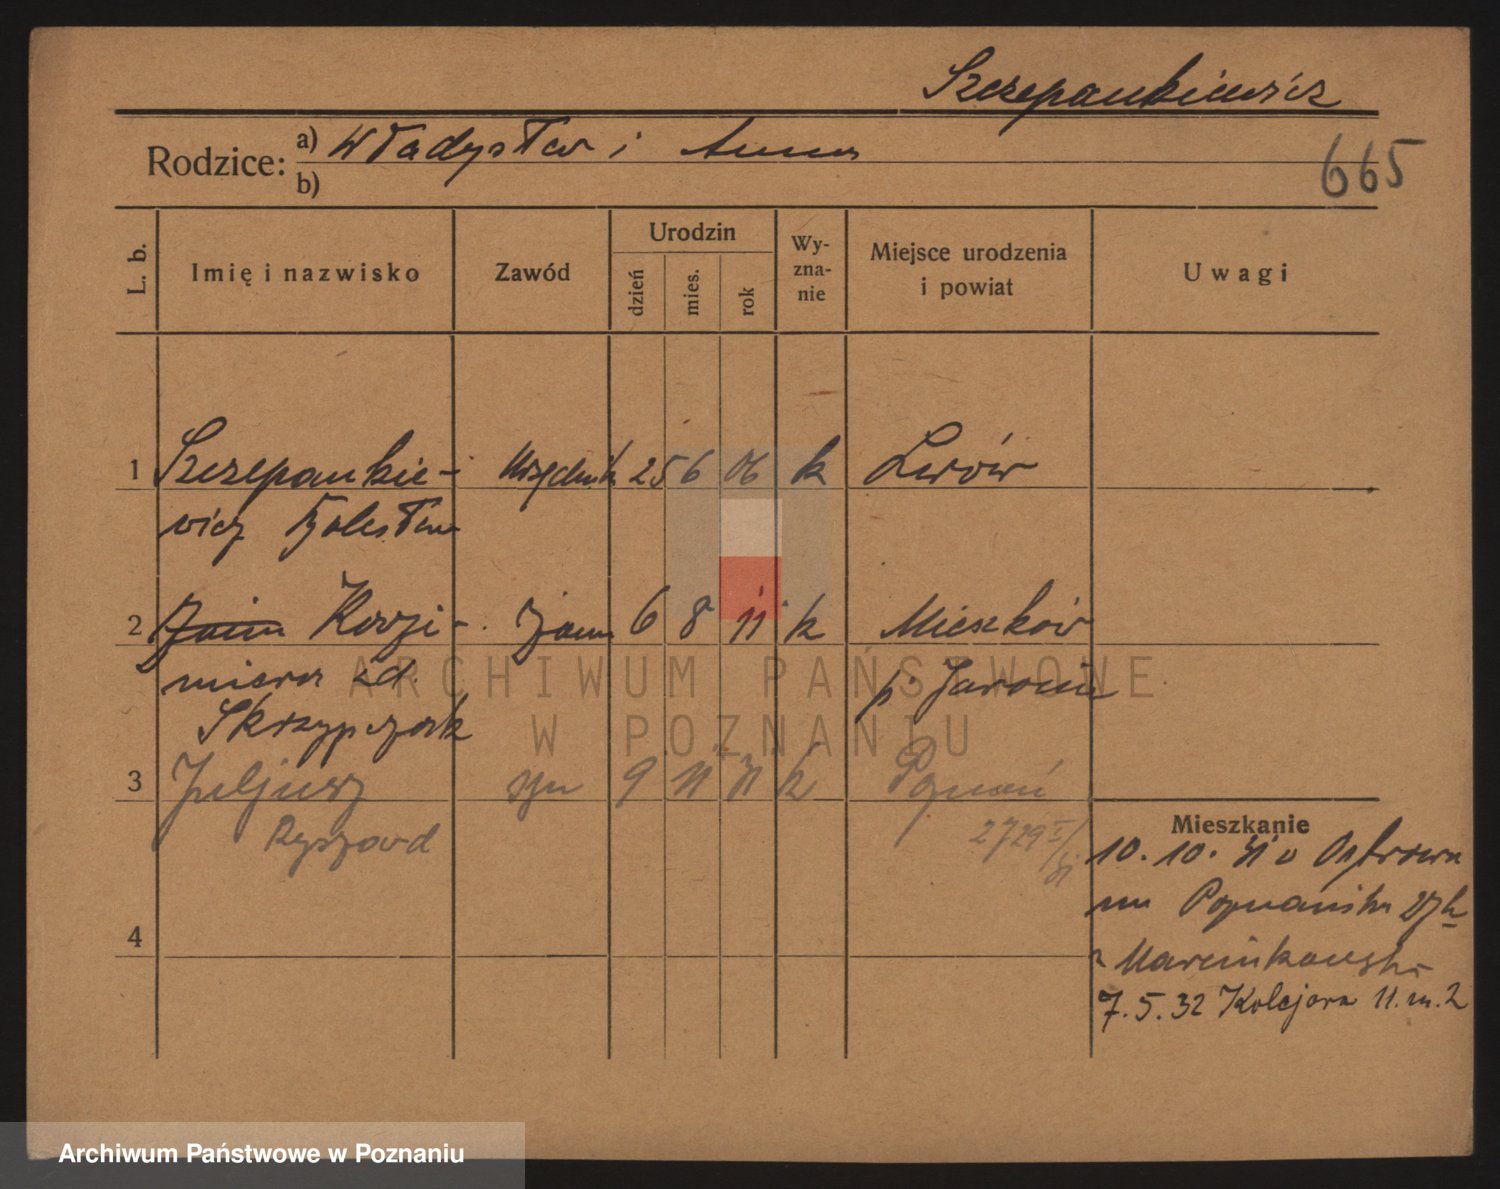 Szczepankiewicz
Rodzice: a) Władysław i Anna
b)
665
L. b.
Imię i nazwisko
Zawód
Urodzin
dzień
mies.
rok
Wy-
zna-
nie
Miejsce urodzenia
i powiat
Uwagi
1 Szczepankie- Urzędnik 25 6 06 k Lwów
wicz Bolesław
2 Kazi- żona 6 8 11 k Mieszków
miera zd. p. Jarocin
Skrzypczak
3 Juljusz syn 9 11 31 k Poznań
Ryszard 2729 I/31
4
Mieszkanie
10. 10. 31 Dąbrowa
Poznańska
Marcinkowska
7. 5. 32 Kolejowa 11. m. 2
ARCHIWUM PAŃSTWOWE
W POZNANIU
Archiwum Państwowe w Poznaniu